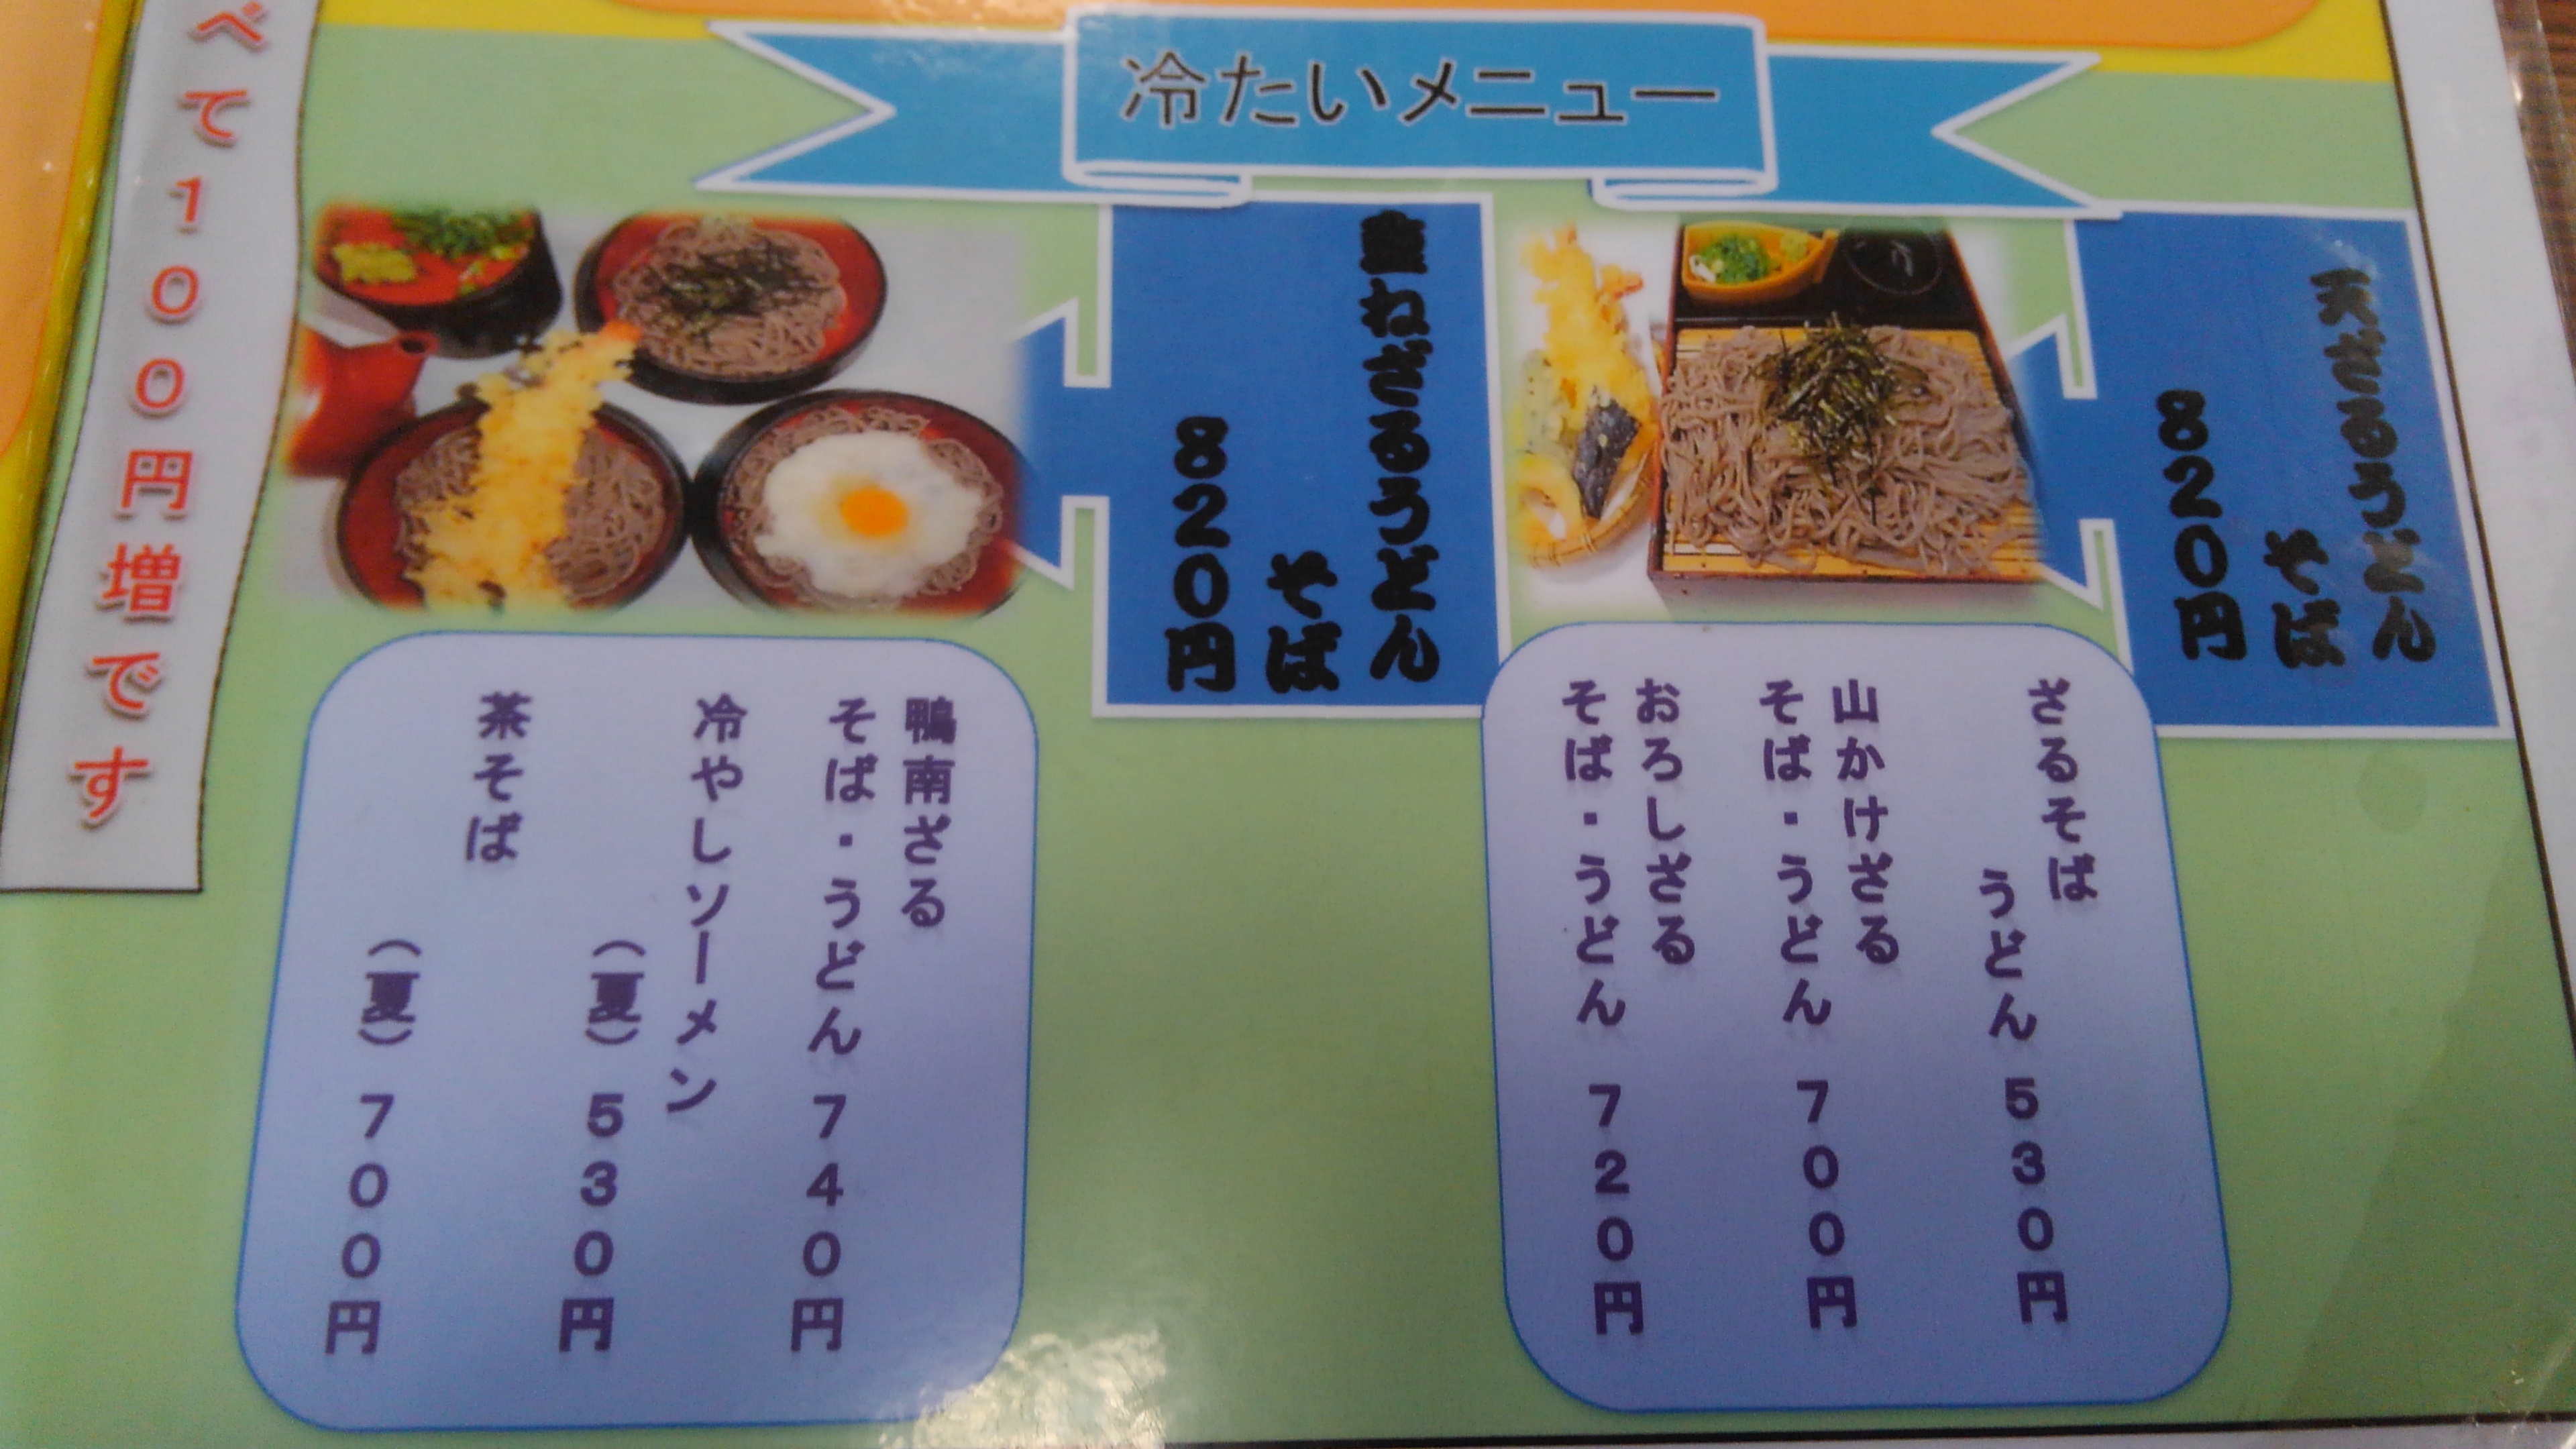 冷たいメニュー
天ざるうどん
そば
820円
重ねざるうどん
そば
820円
ざるそば
うどん 530円
山かけざる
そば・うどん 700円
おろしざる
そば・うどん 720円
鴨南ざる
そば・うどん 740円
冷やしソーメン
（夏） 530円
茶そば
（夏） 700円
べて100円増です